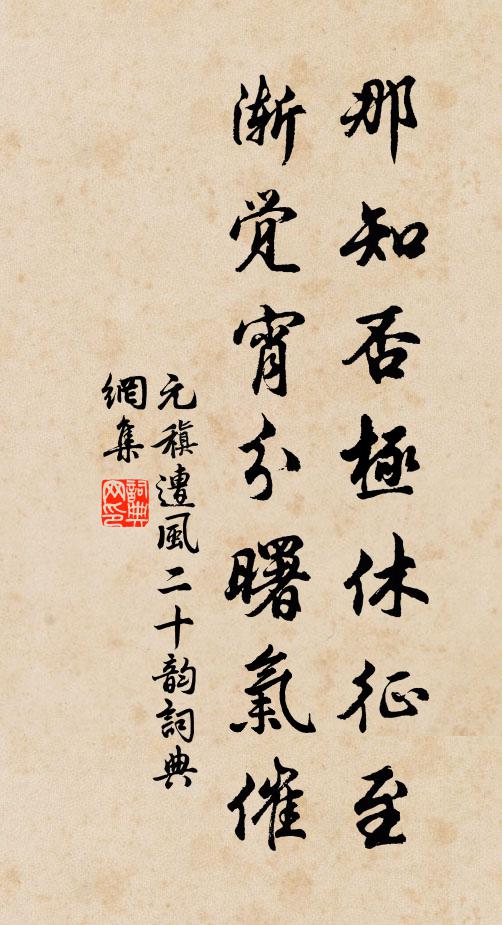 那知否極休征至
渐觉宵分曙氣催
元稹遭風二十韵詞典
網集
詞典
网印